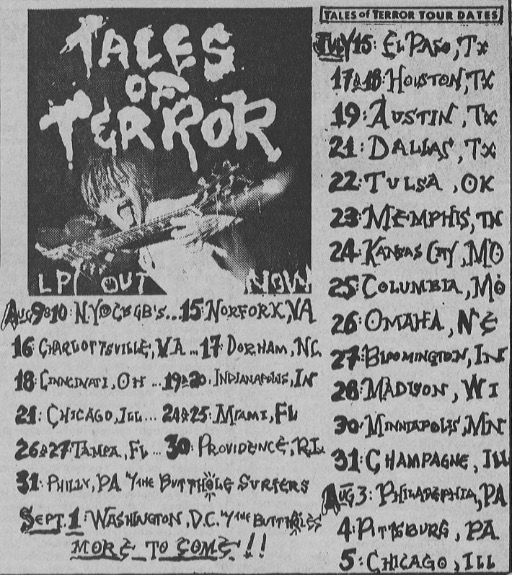 TALES
OF
TERROR
LP! OUT NOW
TALES OF TERROR TOUR DATES
JULY 15: EL PASO, TX
17&18: HOUSTON, TX
19: AUSTIN, TX
21: DALLAS, TX
22: TULSA, OK
23: MEMPHIS, TN
24: KANSAS CITY, MO
25: COLUMBIA, MO
26: OMAHA, NE
27: BLOOMINGTON, IN
28: MADISON, WI
30: MINNIAPOLIS, MN
31: CHAMPAGNE, ILL
AUG 3: PHILADEPHIA, PA
4: PITTSBURG, PA
5: CHICAGO, ILL
AUG 9&10: N.Y@CBGB'S... 15: NORFORK, VA
16: CHARLOTTSVILLE, VA ... 17: DORHAM, NC
18: CINCINATI, OH ... 19&20: INDIANAPOLIS, IN
21: CHICAGO, ILL... 24&25: MIAMI, FL
26&27: TAMPA, FL ... 30: PROVIDENCE, R.I.
31: PHILLY, PA W/THE BUTTHOLE SURFERS
SEPT. 1: WASHINGTON, D.C. W/THE BUTTHOLES
MORE TO COME!!